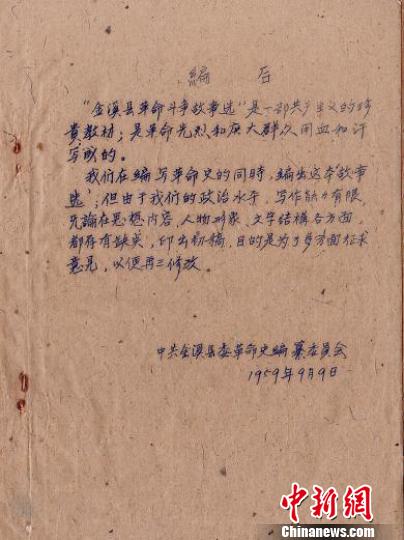 编后
"金溪县革命斗争故事选"是一部共产主义的珍
贵教材；是革命先烈和广大群众用血和汗
写成的。
我们在编写革命史的同时，编出这本故事
选；但由于我们的政治水平，写作能力有限，
无論在思想内容，人物形象，文字结構各方面，
都存有缺点，印出初稿，目的是为了多方面征求
意见，以便再三修改。
中共金溪县委革命史编纂委員会
1959年9月9日
中新網
Chinanews.com